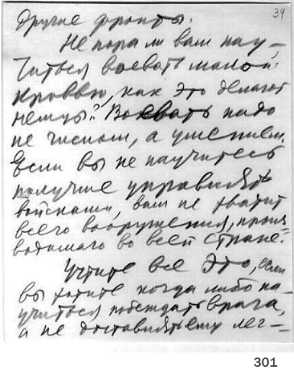 39
другие фронты.
Не пора ли вам нау-
читься воевать малой
кровью, как это делают
немцы? Воевать надо
не числом, а умением.
Если вы не научитесь
получше управлять
войсками, вам не хватит
всего вооружения, произ-
водимого во всей стране.
Учтите все это, если
вы хотите когда либо на-
учиться побеждать врага,
а не доставлять ему лег-
301